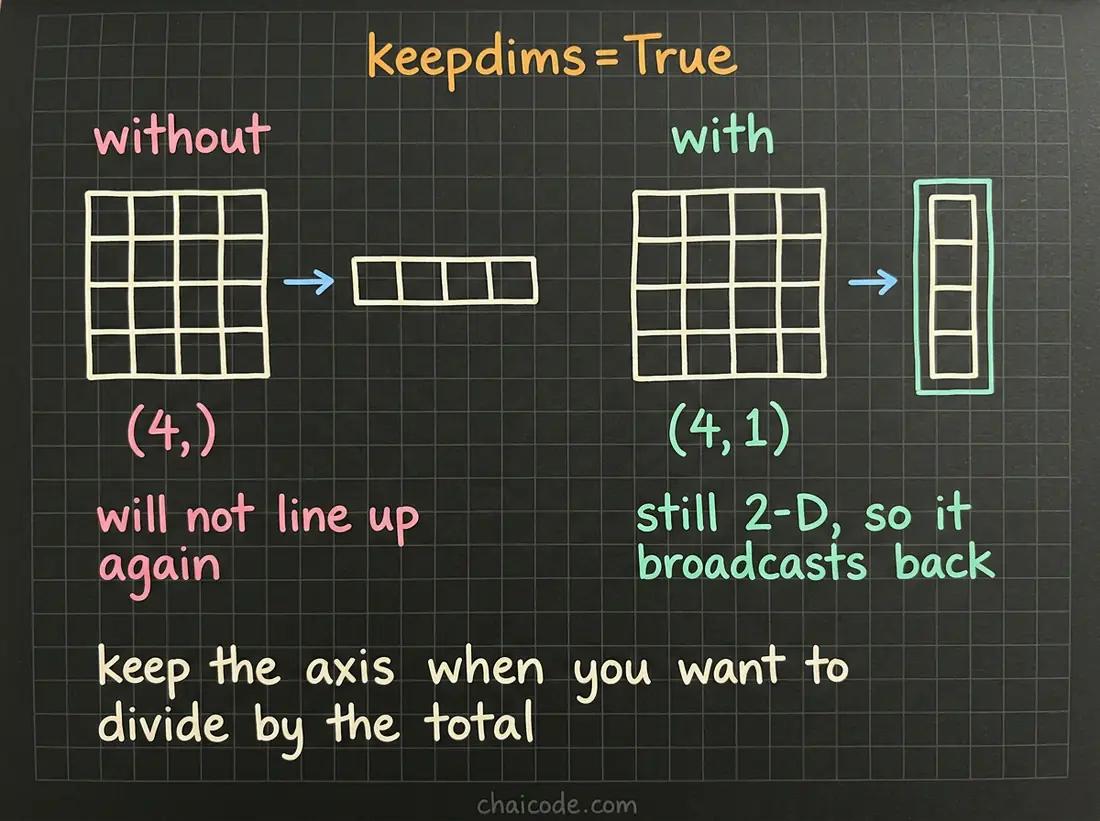 keepdims=True
without
with
(4,)
(4, 1)
will not line up
again
still 2-D, so it
broadcasts back
keep the axis when you want to
divide by the total
chaicode.com